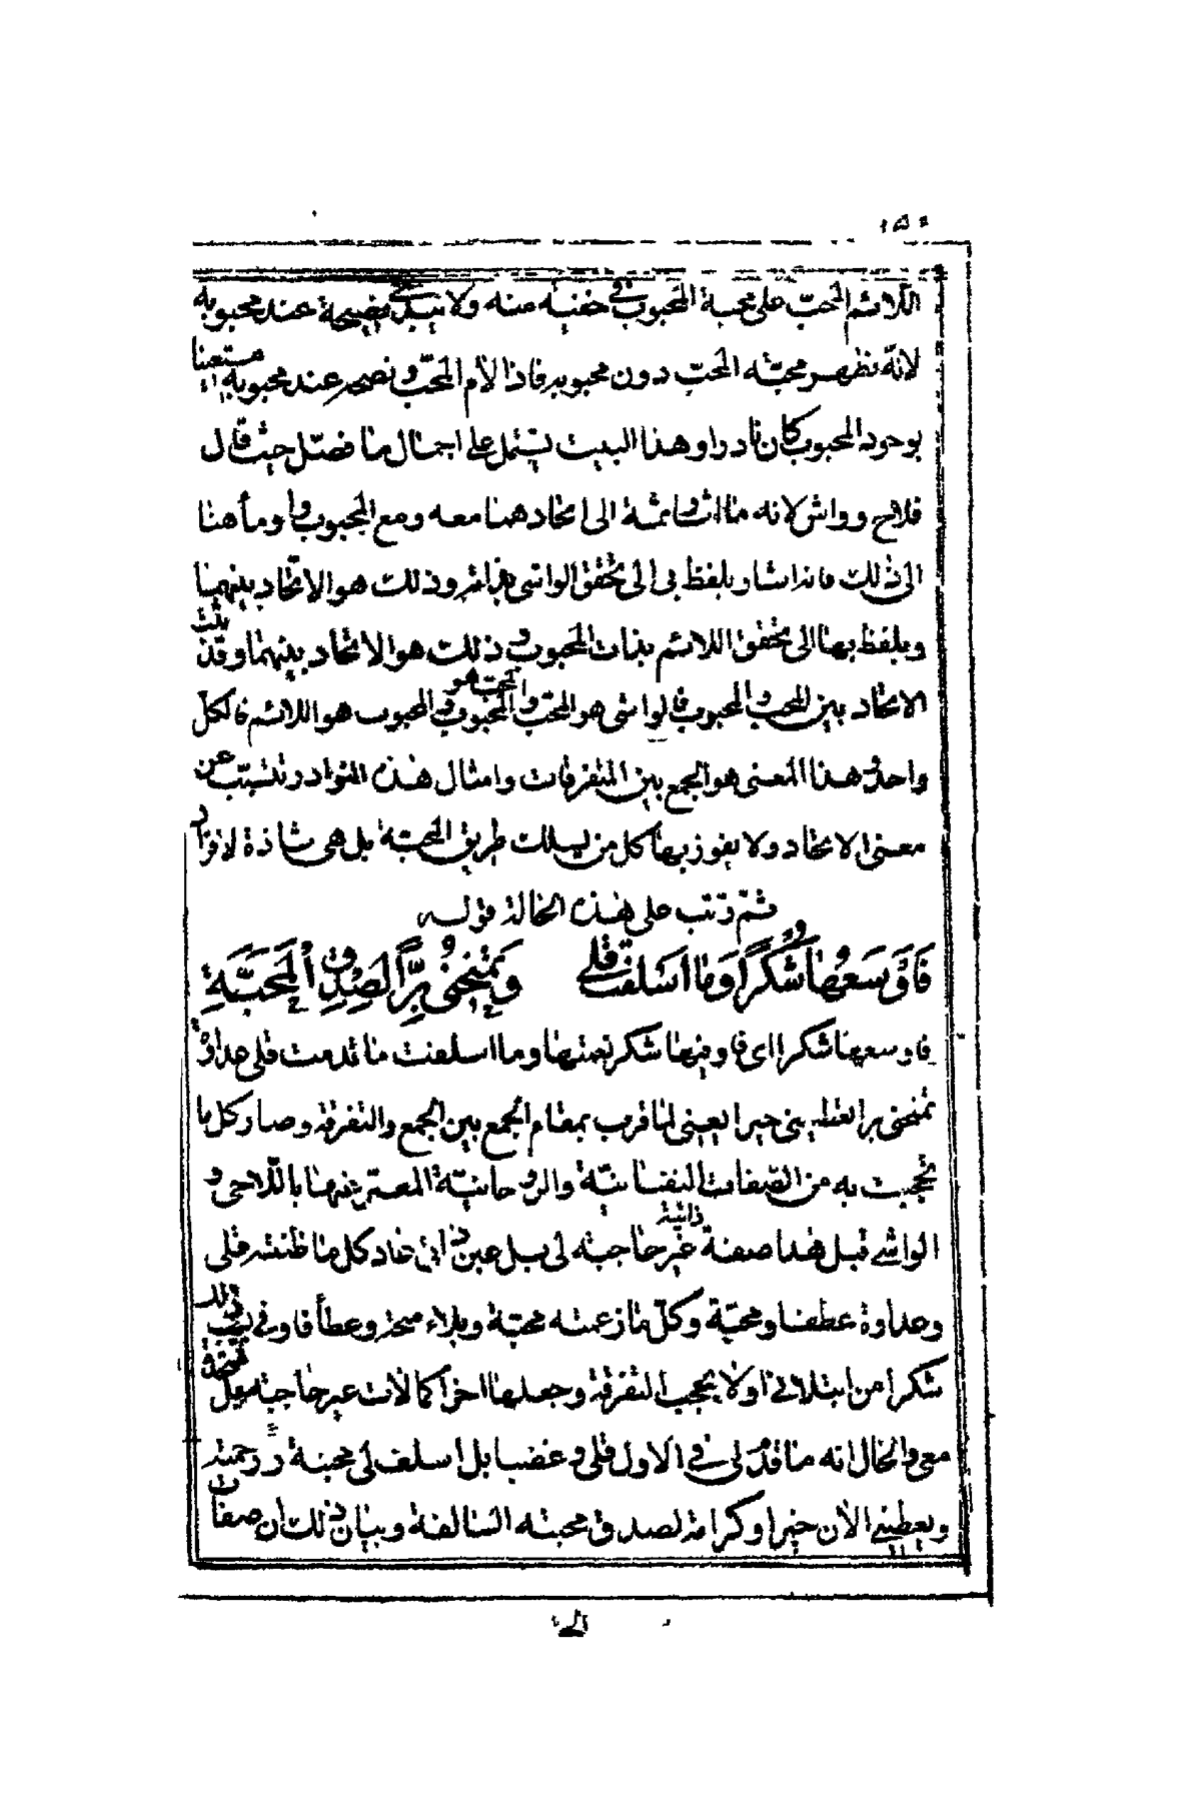 اللائم المحبّ على محبة المحبوب في خفية منه ولا يبدي نصيحة عند محبوبه
لانّه نظهر محبّته المحب دون محبوبه فاذا لام المحبّ ونصحه عند محبوبه مستعينا
بوجود المحبوب كان نادرا وهذا البيت يشتمل على اجمال ما فصّل حيث قال
فلاح وواش لانه ما الى اتحادهما معه ومع المحبوب واومأ هنا
الى ذلك فانه اشار بلفظ بي الى تحقق الواشي بذاته وذلك هو الاتحاد بينهما
وبلفظ بها الى تحقق اللائم بذات المحبوب وذلك هو الاتحاد بينهما وقد ثبت
الاتحاد بين المحب والمحبوب فالواشي هو المحبّ والمحب هو المحبوب والمحبوب هو اللائم فالكل
واحد هذا المعنى هو الجمع بين المتفرقات وامثال هذه النوادر تتسبّب عن
معنى الاتحاد ولا يفوز بها كل من يسلك طريق المحبّة بل هي شاذة لافراد
ثم رتب على هذه الحالة قوله
فَاَوْسَعْهَا شُكْرًا وَمَا اَسْلَفَتْ قِلًى وَتَمْنَحُنِي بِرًّا لِصِدْقِ الْمَحَبَّةِ
فاوسعها شكرا اي فاوفيها شكر نعمتها وما اسلفت ما قدمت قلى عداوة
تمنحني برا تعطيني خيرا يعني لما قرب بمقام الجمع بين الجمع والتفرقة وصار كل ما
تحجبت به من الصّفات النفسانيّة والروحانيّة المعتر عنها باللّاحي و
الواشي قبل هذا صفة ذاتية غير حاجبة لي بل عين ذاتي عاد كل ما ظننته قلى
وعداوة عطفا ومحبّة وكلّ ما زعمته محبّة وبلاء منحة وعطاء فاوفي
شكرا من ابتلاني اولا بحجب التفرقة وجعلها اخرا كمالات غير حاجبة
معي والحال انه ما قدّم لي في الاول قلى وغضبا بل اسلف لي محبة ورحمة
ويعطيني الان خيرا وكرامة لصدق محبته السالفة وبيان ذلك ان صفات